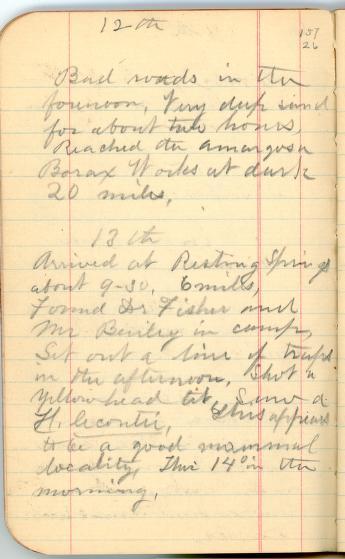 12th
157
26
Bad roads in the
forenoon, Very deep sand
for about two hours,
Reached the amargosa
Borax Works at dark
20 miles,
13th
Arrived at Resting Springs
about 9-30, 6 miles,
Found Dr Fisher and
Mr Bailey in camp,
Set out a line of traps
in the afternoon, Shot a
yellow head tit, Saw a
H. lecontei, This appears
to be a good mammal
locality, Ther 14° in the
morning,